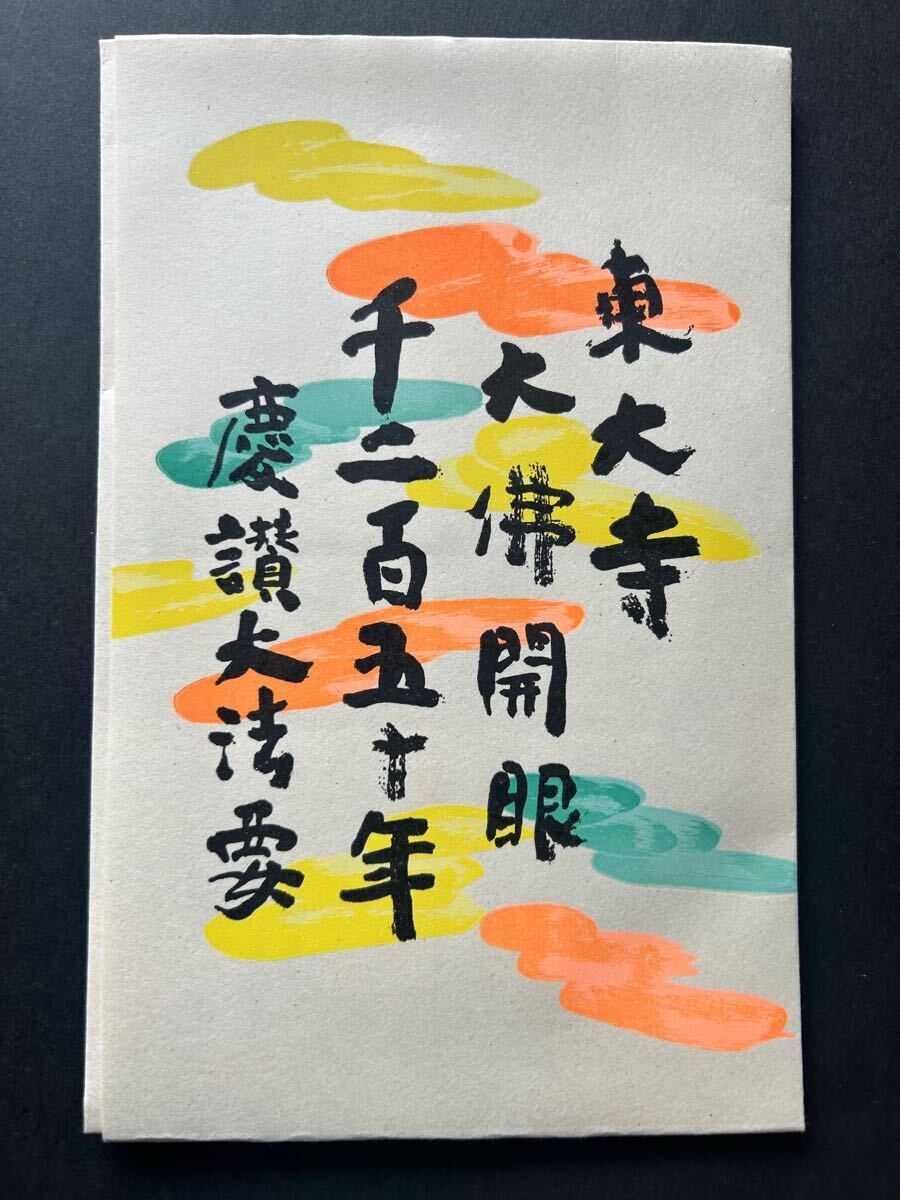 東大寺
大佛開眼
千二百五十年
慶讃大法要